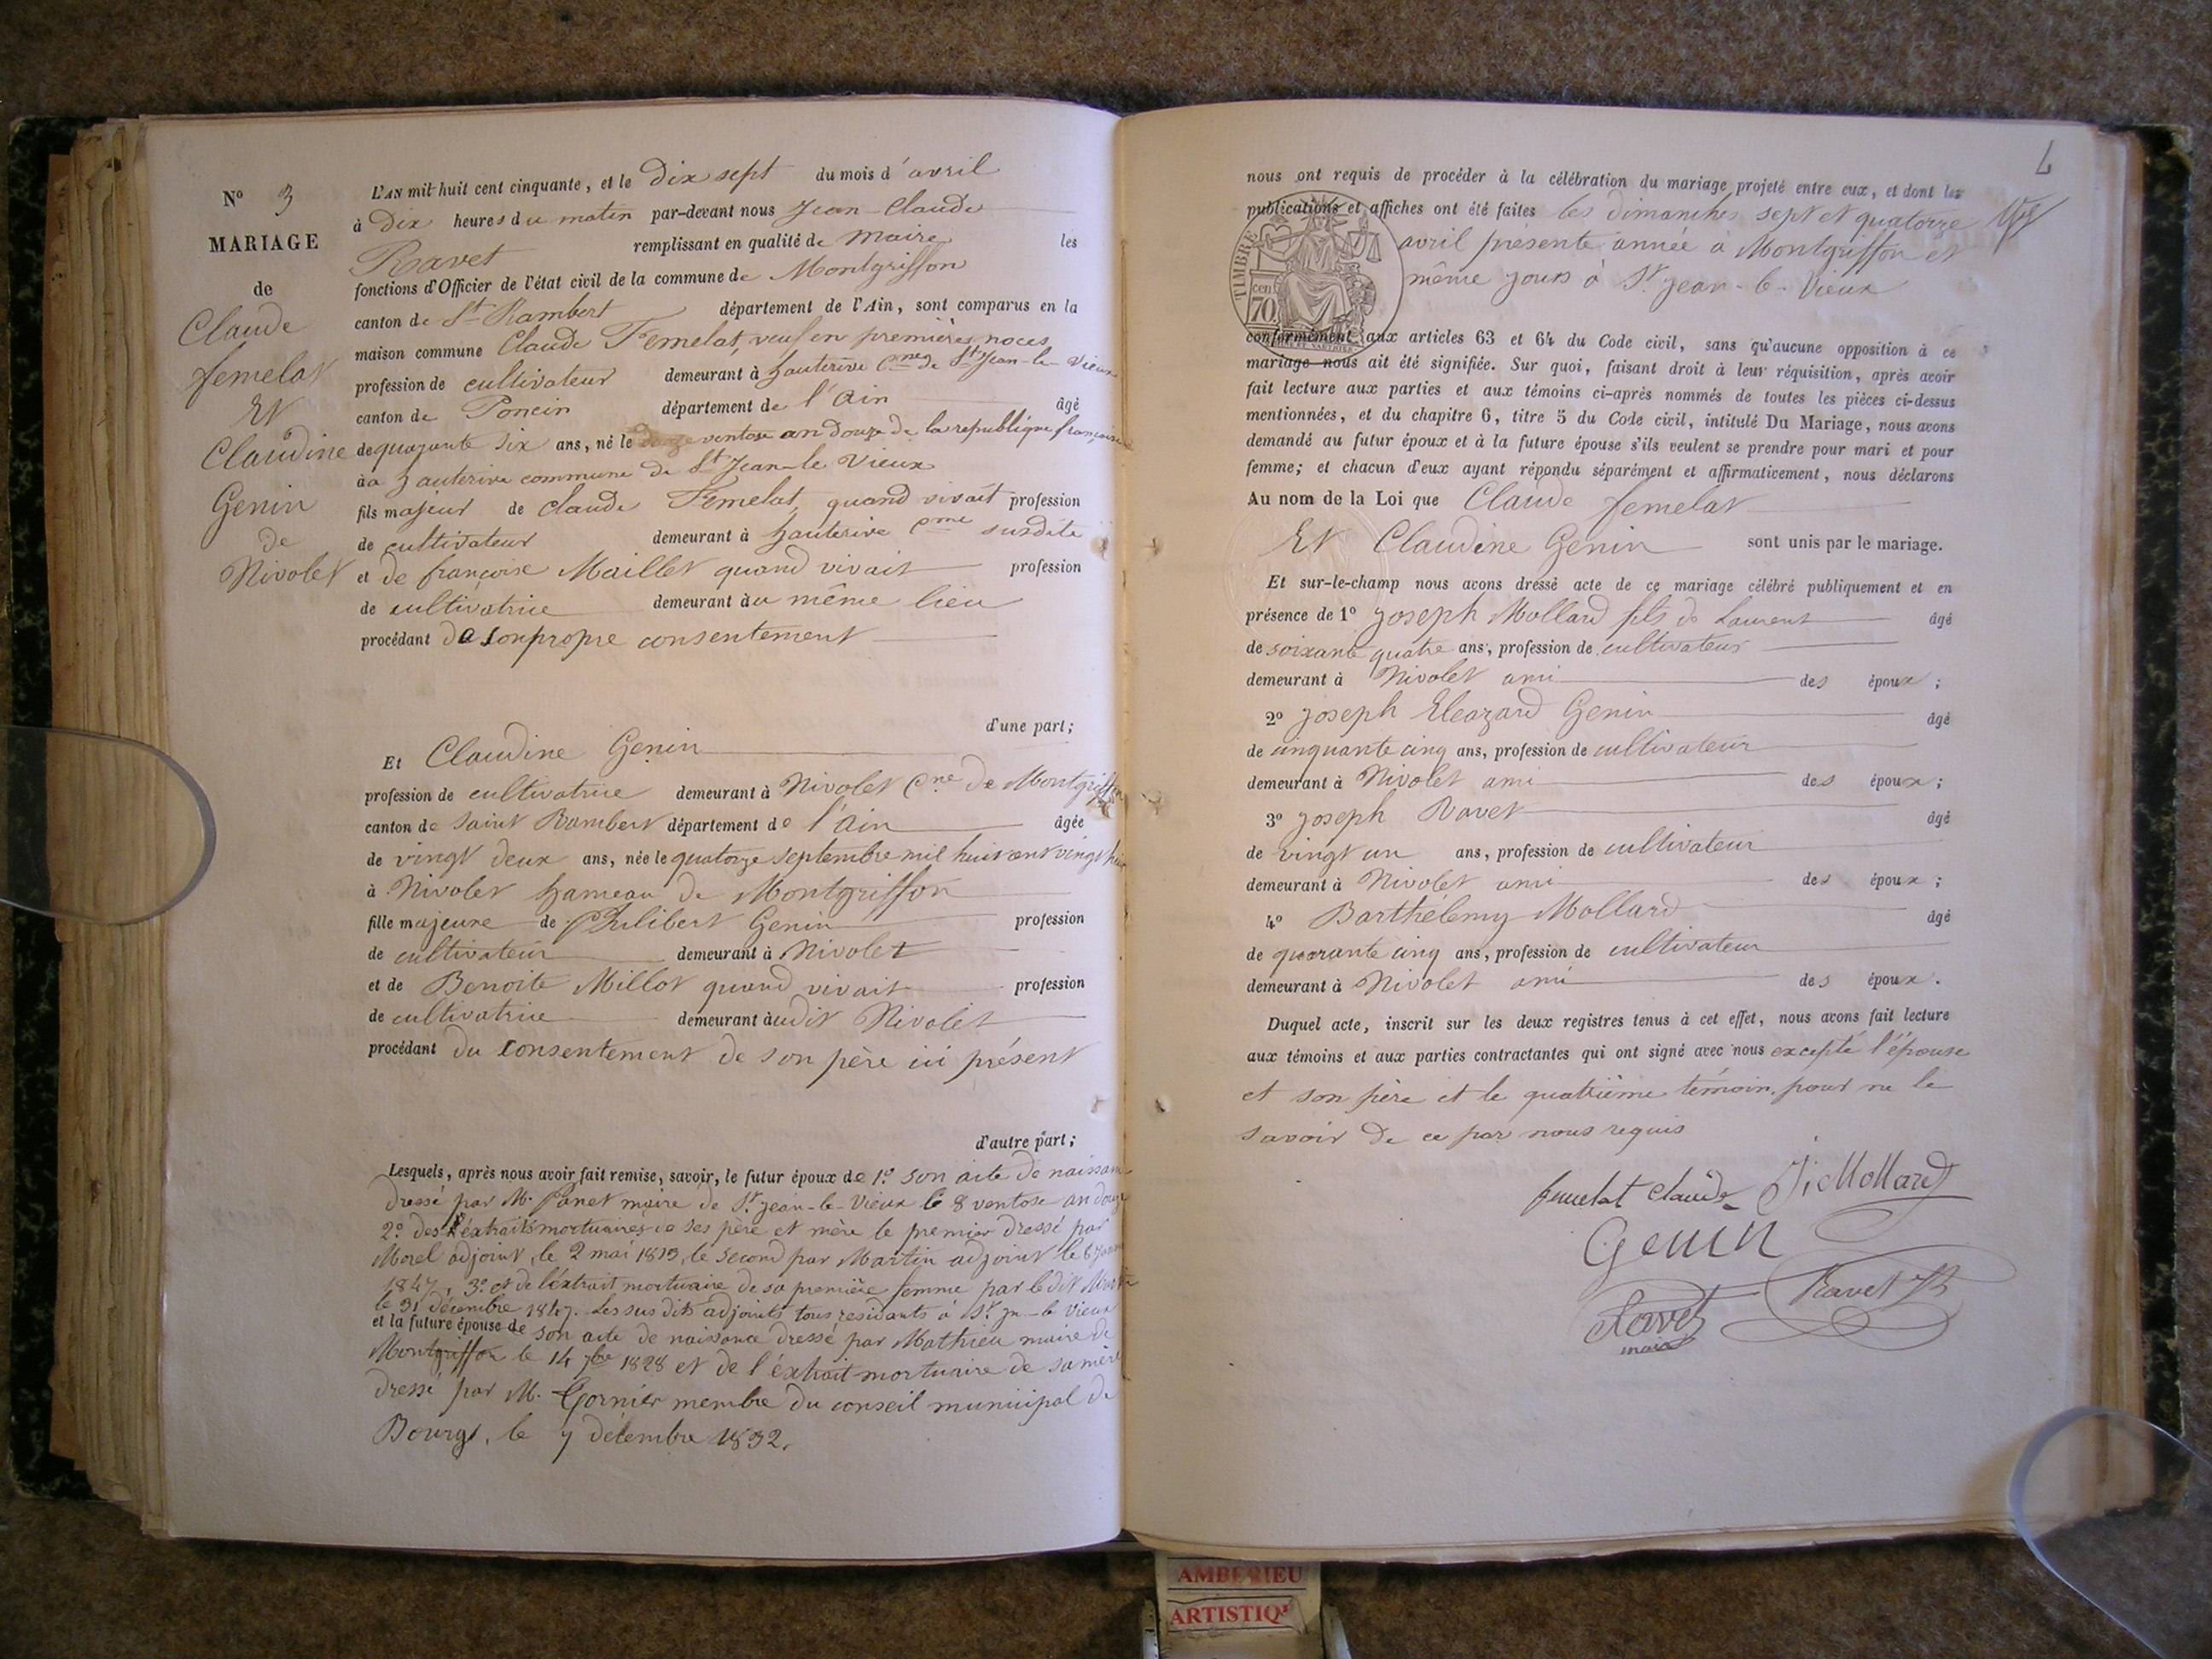 N° 3
MARIAGE
de
Claude
femelat
Et
Claudine
Genin
de
Nivolet
L'AN mil huit cent cinquante, et le Dix sept du mois d'avril
à Dix heures du matin par-devant nous Jean-Claude
Ravet remplissant en qualité de Maire les
fonctions d'Officier de l'état civil de la commune de Montgriffon
canton de St Rambert département de l'Ain, sont comparus en la
maison commune Claude Femelat, veuf en premières noces
profession de cultivateur demeurant à hauterive Cne de St Jean-le-Vieux
canton de Poncin département de l'Ain âgé
de quarante six ans, né le ventose an douze de la republique française
à a hauterive commune de St Jean-le Vieux
fils majeur de Claude Femelat quand vivait profession
de cultivateur demeurant à hauterive Cme susdite
et de françoise Maillet quand vivait profession
de cultivatrice demeurant àu même lieu
procédant de son propre consentement
d'une part;
Et Claudine Genin
profession de cultivatrice demeurant à Nivolet Cne de Montgriffon
canton de Saint Rambert département de l'Ain âgée
de vingt deux ans, née le quatorze septembre mil huit cent vingt huit
à Nivolet hameau de Montgriffon
fille majeure de Philibert Genin profession
de cultivateur demeurant à Nivolet
et de Benoite Millot quand vivait profession
de cultivatrice demeurant àudit Nivolet
procédant du consentement de son père ici présent
d'autre part;
Lesquels, après nous avoir fait remise, savoir, le futur époux de 1° son acte de naissance
dressé par M. Panet maire de St jean-le-Vieux le 8 ventose an douze
2° des extraits mortuaires de ses père et mère le premier dressé par
Morel adjoint, le 2 mai 1813, le second par Martin adjoint le 6
1847, 3° et de l'extrait mortuaire de sa première femme par ledit
le 31 décembre 1847. Les sus dits adjoints tous residants à St jn-le Vieux
et la future épouse de son acte de naissance dressé par Mathieu maire de
Montgriffon le 14 7bre 1828 et de l'éxtrait mortuaire de sa mère
dressé par M. membre du conseil municipal de
Bourg, le 7 décembre 1832.
nous ont requis de procéder à la célébration du mariage projeté entre eux, et dont les
publications et affiches ont été faites les dimanches sept et quatorze
avril présente année à Montgriffon et
même jours à St jean-le-Vieux
TIMBRE
cen
70
conformément aux articles 63 et 64 du Code civil, sans qu'aucune opposition à ce
mariage nous ait été signifiée. Sur quoi, faisant droit à leur réquisition, après avoir
fait lecture aux parties et aux témoins ci-après nommés de toutes les pièces ci-dessus
mentionnées, et du chapitre 6, titre 5 du Code civil, intitulé Du Mariage, nous avons
demandé au futur époux et à la future épouse s'ils veulent se prendre pour mari et pour
femme; et chacun d'eux ayant répondu séparément et affirmativement, nous déclarons
Au nom de la Loi que Claude femelat
Et Claudine Genin sont unis par le mariage.
Et sur-le-champ nous avons dressé acte de ce mariage célébré publiquement et en
présence de 1° Joseph Mollard fils de Laurent âgé
de soixante quatre ans, profession de cultivateur
demeurant à Nivolet ami des époux;
2° Joseph Eleazard Genin âgé
de cinquante cinq ans, profession de cultivateur
demeurant à Nivolet ami des époux;
3° Joseph Ravet âgé
de vingt un ans, profession de cultivateur
demeurant à Nivolet ami des époux;
4° Barthélemy Mollard âgé
de quarante cinq ans, profession de cultivateur
demeurant à Nivolet ami des époux.
Duquel acte, inscrit sur les deux registres tenus à cet effet, nous avons fait lecture
aux témoins et aux parties contractantes qui ont signé avec nous excepté l'épouse
et son père et le quatrième témoin pour ne le
savoir de ce par nous requis
femelat Claude Mollard
Genin
Ravet Ravet
maire
AMBERIEU
ARTISTIQ